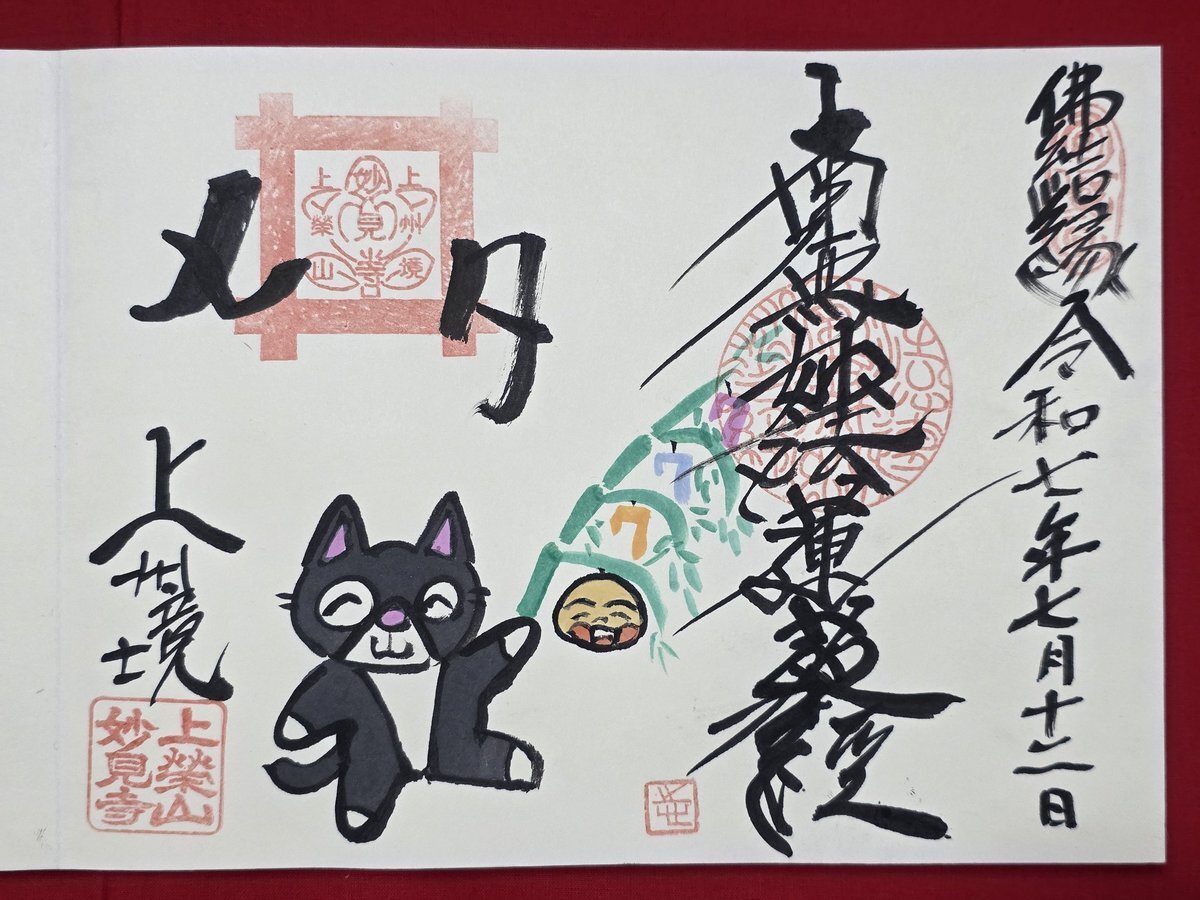 佛結縁 令和七年七月十二日
南無妙法蓮華經
7
7
7
七月
上州境
妙見寺
上榮山
上州境
上榮山
妙見寺